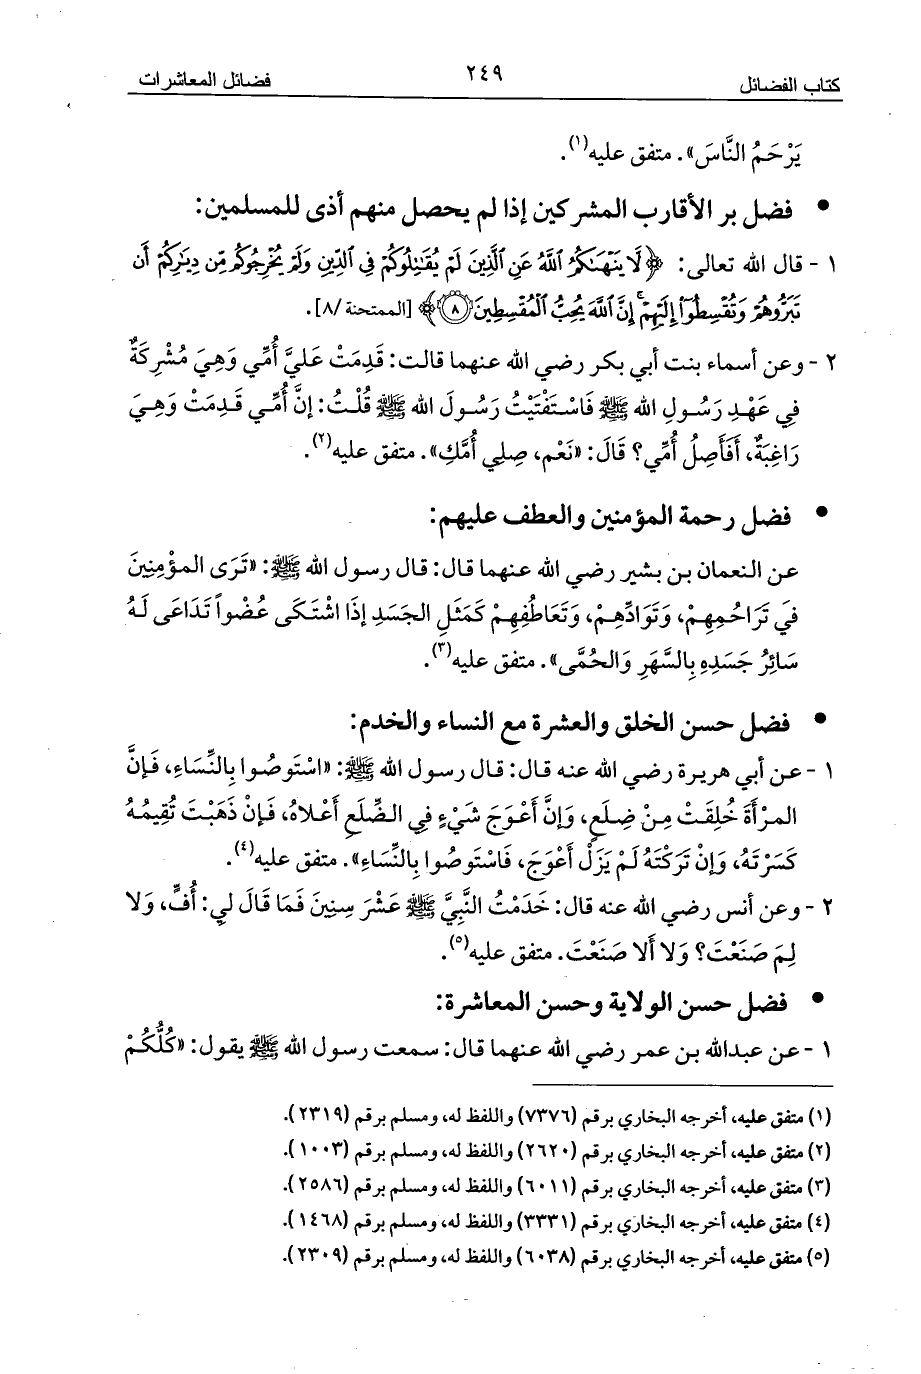 كتاب الفضائل ٢٤٩ فضائل المعاشرات
يَرْحَمُ النَّاسَ». متفق عليه(١).
• فضل بر الأقارب المشركين إذا لم يحصل منهم أذى للمسلمين:
١ - قال الله تعالى: ﴿لَّا يَنْهَىٰكُمُ ٱللَّهُ عَنِ ٱلَّذِينَ لَمْ يُقَٰتِلُوكُمْ فِي ٱلدِّينِ وَلَمْ يُخْرِجُوكُم مِّن دِيَٰرِكُمْ أَن
تَبَرُّوهُمْ وَتُقْسِطُوٓا۟ إِلَيْهِمْ ۚ إِنَّ ٱللَّهَ يُحِبُّ ٱلْمُقْسِطِينَ ٨﴾ [الممتحنة/٨].
٢ - وعن أسماء بنت أبي بكر رضي الله عنهما قالت: قَدِمَتْ عَلَيَّ أُمِّي وَهِيَ مُشْرِكَةٌ
فِي عَهْدِ رَسُولِ الله ﷺ فَاسْتَفْتَيْتُ رَسُولَ الله ﷺ قُلْتُ: إنَّ أُمِّي قَدِمَتْ وَهِيَ
رَاغِبَةٌ، أَفَأَصِلُ أُمِّي؟ قَالَ: «نَعْم، صِلِي أُمَّكِ». متفق عليه(٢).
• فضل رحمة المؤمنين والعطف عليهم:
عن النعمان بن بشير رضي الله عنهما قال: قال رسول الله ﷺ: «تَرَى المؤْمِنِينَ
فيَ تَرَاحُمِهِمْ، وَتَوَادِّهِمْ، وَتَعَاطُفِهِمْ كَمَثَلِ الجَسَدِ إذَا اشْتَكَى عُضْواً تَدَاعَى لَـهُ
سَائِرُ جَسَدِهِ بِالسَّهَرِ وَالحُمَّى». متفق عليه(٣).
• فضل حسن الخلق والعشرة مع النساء والخدم:
١ - عن أبي هريرة رضي الله عنه قال: قال رسول الله ﷺ: «اسْتَوصُوا بِالنِّسَاءِ، فَإنَّ
المرْأَةَ خُلِقَتْ مِنْ ضِلَعٍ، وَإنَّ أَعْوَجَ شَيْءٍ فِي الضِّلَعِ أَعْلاهُ، فَإنْ ذَهَبْتَ تُقِيمُهُ
كَسَرْتَهُ، وَإنْ تَرَكْتَهُ لَمْ يَزَلْ أَعْوَجَ، فَاسْتَوصُوا بِالنِّسَاءِ». متفق عليه(٤).
٢ - وعن أنس رضي الله عنه قال: خَدَمْتُ النَّبِيَّ ﷺ عَشْرَ سِنِينَ فَمَا قَالَ لِي: أُفٍّ، وَلا
لِمَ صَنَعْتَ؟ وَلا أَلا صَنَعْتَ. متفق عليه(٥).
• فضل حسن الولاية وحسن المعاشرة:
١ - عن عبدالله بن عمر رضي الله عنهما قال: سمعت رسول الله ﷺ يقول: «كُلُّكُمْ
(١) متفق عليه، أخرجه البخاري برقم (٧٣٧٦) واللفظ له، ومسلم برقم (٢٣١٩).
(٢) متفق عليه، أخرجه البخاري برقم (٢٦٢٠) واللفظ له، ومسلم برقم (١٠٠٣).
(٣) متفق عليه، أخرجه البخاري برقم (٦٠١١) واللفظ له، ومسلم برقم (٢٥٨٦).
(٤) متفق عليه، أخرجه البخاري برقم (٣٣٣١) واللفظ له، ومسلم برقم (١٤٦٨).
(٥) متفق عليه، أخرجه البخاري برقم (٦٠٣٨) واللفظ له، ومسلم برقم (٢٣٠٩).